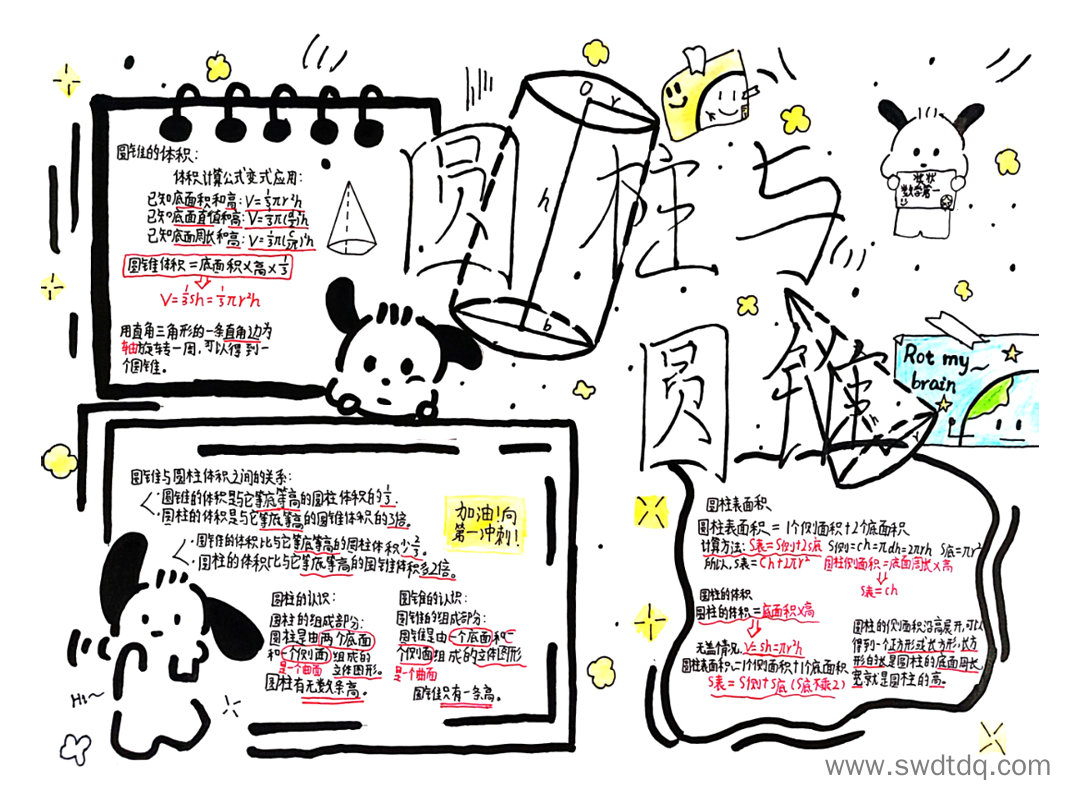 圆柱与
圆锥
O r
h
b
h
r
状状
数学第一
Rot my~
brain
圆锥的体积:
体积计算公式变式应用:
已知底面积和高:V=⅓πr²h
已知底面直值和高:V=⅓π(d/2)²h
已知底面周长和高:V=⅓π(C/2π)²h
圆锥体积=底面积×高×⅓
V=⅓sh=⅓πr²h
用直角三角形的一条直角边为
轴旋转一周,可以得到一
个圆锥。
圆锥与圆柱体积之间的关系:
·圆锥的体积是与它等底等高的圆柱体积的⅓.
·圆柱的体积是与它等底等高的圆锥体积的3倍。
·圆锥的体积比与它等底等高的圆柱体积少⅔。
·圆柱的体积比与它等底等高的圆锥体积多2倍。
加油!向
第一冲刺!
圆柱的认识:
圆柱的组成部分:
圆柱是由两个底面
和一个侧面组成的
是一个曲面 立体图形。
圆柱有无数条高。
圆锥的认识:
圆锥的组成部分:
圆锥是由一个底面和一
个侧面组成的立体图形
是一个曲面
圆锥只有一条高。
Hi~
圆柱表面积
圆柱表面积=1个侧面积+2个底面积
计算方法:S表=S侧+2S底 S侧=ch=πdh=2πrh S底=πr²
所以,S表=Ch+2πr² 圆柱侧面积=底面周长×高
S表=ch
圆柱的体积
圆柱的体积=底面积×高
V=sh=πr²h
无盖情况,
圆柱表面积=1个侧面积+1个底面积
S表=S侧+S底(S底不乘2)
圆柱的侧面积沿高展开,可以
得到一个正方形或长方形,长方
形的长是圆柱的底面周长,
宽就是圆柱的高。
www.swdtdq.com